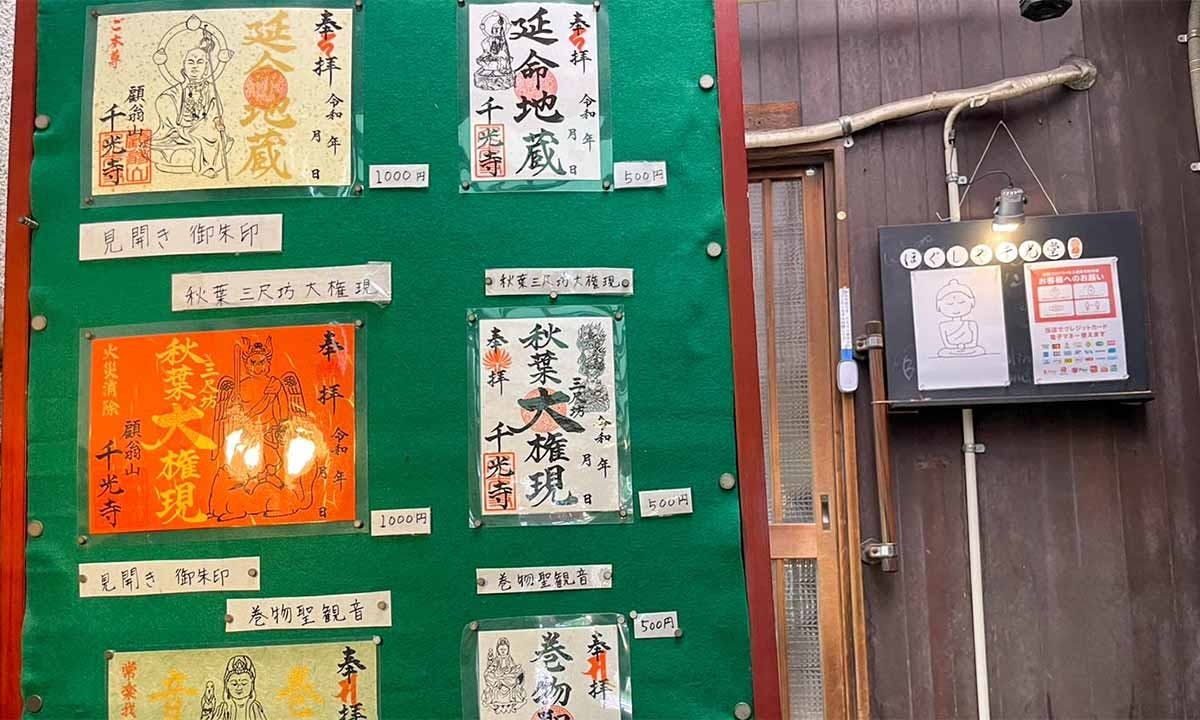 奉拝
延命地蔵
ご本尊
令和 年 月 日
顧翁山
千光寺
1000円
奉拝
延命地蔵
令和 年 月 日
千光寺
500円
見開き 御朱印
秋葉三尺坊大権現
秋葉三尺坊大権現
奉拝
三尺坊
秋葉大権現
火災消除
令和 年 月 日
顧翁山
千光寺
1000円
奉拝
秋葉大権現
三尺坊
令和 年 月 日
千光寺
500円
見開き 御朱印
巻物聖観音
巻物聖観音
500円
奉拝
奉拝
巻物
お客様へのお願い
当店でクレジットカード
電子マネー使えます